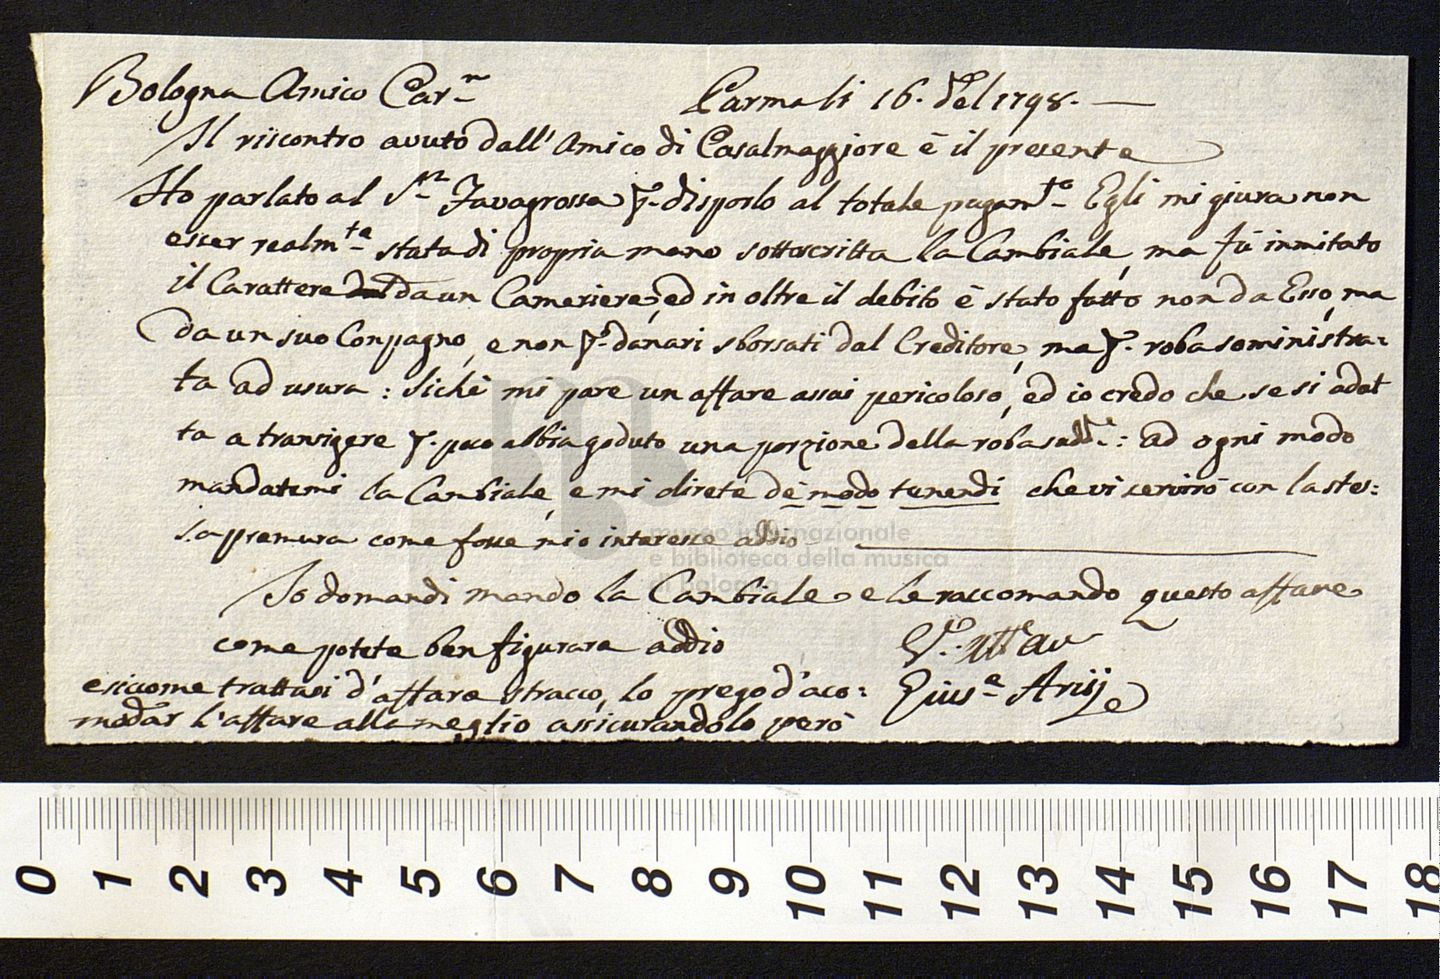 Bologna Amico Car.mo Parma li 16. del 1798.
Il riscontro avuto dall' Amico di Casalmaggiore è il presente
Ho parlato al S.r Favagrossa p. disporlo al totale pagam.to Egli mi giura non
esser realm.te stata di propria mano sottoscritta la Cambiale, ma fù immitato
il Carattere da un Cameriere, ed in oltre il debito è stato fatto non da Esso, ma
da un suo Conpagno, e non p. danari sborsati dal Creditore, ma p. roba soministra:
ta ad usura: Sichè mi pare un affare assai pericoloso, ed io credo che se si adat
ta a transigere p. poco abbia goduto una porzione della roba sud.a: ad ogni modo
mandatemi la Cambiale, e mi direte de modo tenendi che vi servirò con la stes:
sa premura come fosse mio interesse addio
Io domandi mando la Cambiale e le raccomando questo affare
come potete ben figurare addio
e siccome trattasi d'affare stracco, lo prego d'aco:
modar l'affare alla meglio assicurandolo però
Gius.e Arij
museo internazionale
e biblioteca della musica
di bologna
0 1 2 3 4 5 6 7 8 9 10 11 12 13 14 15 16 17 18